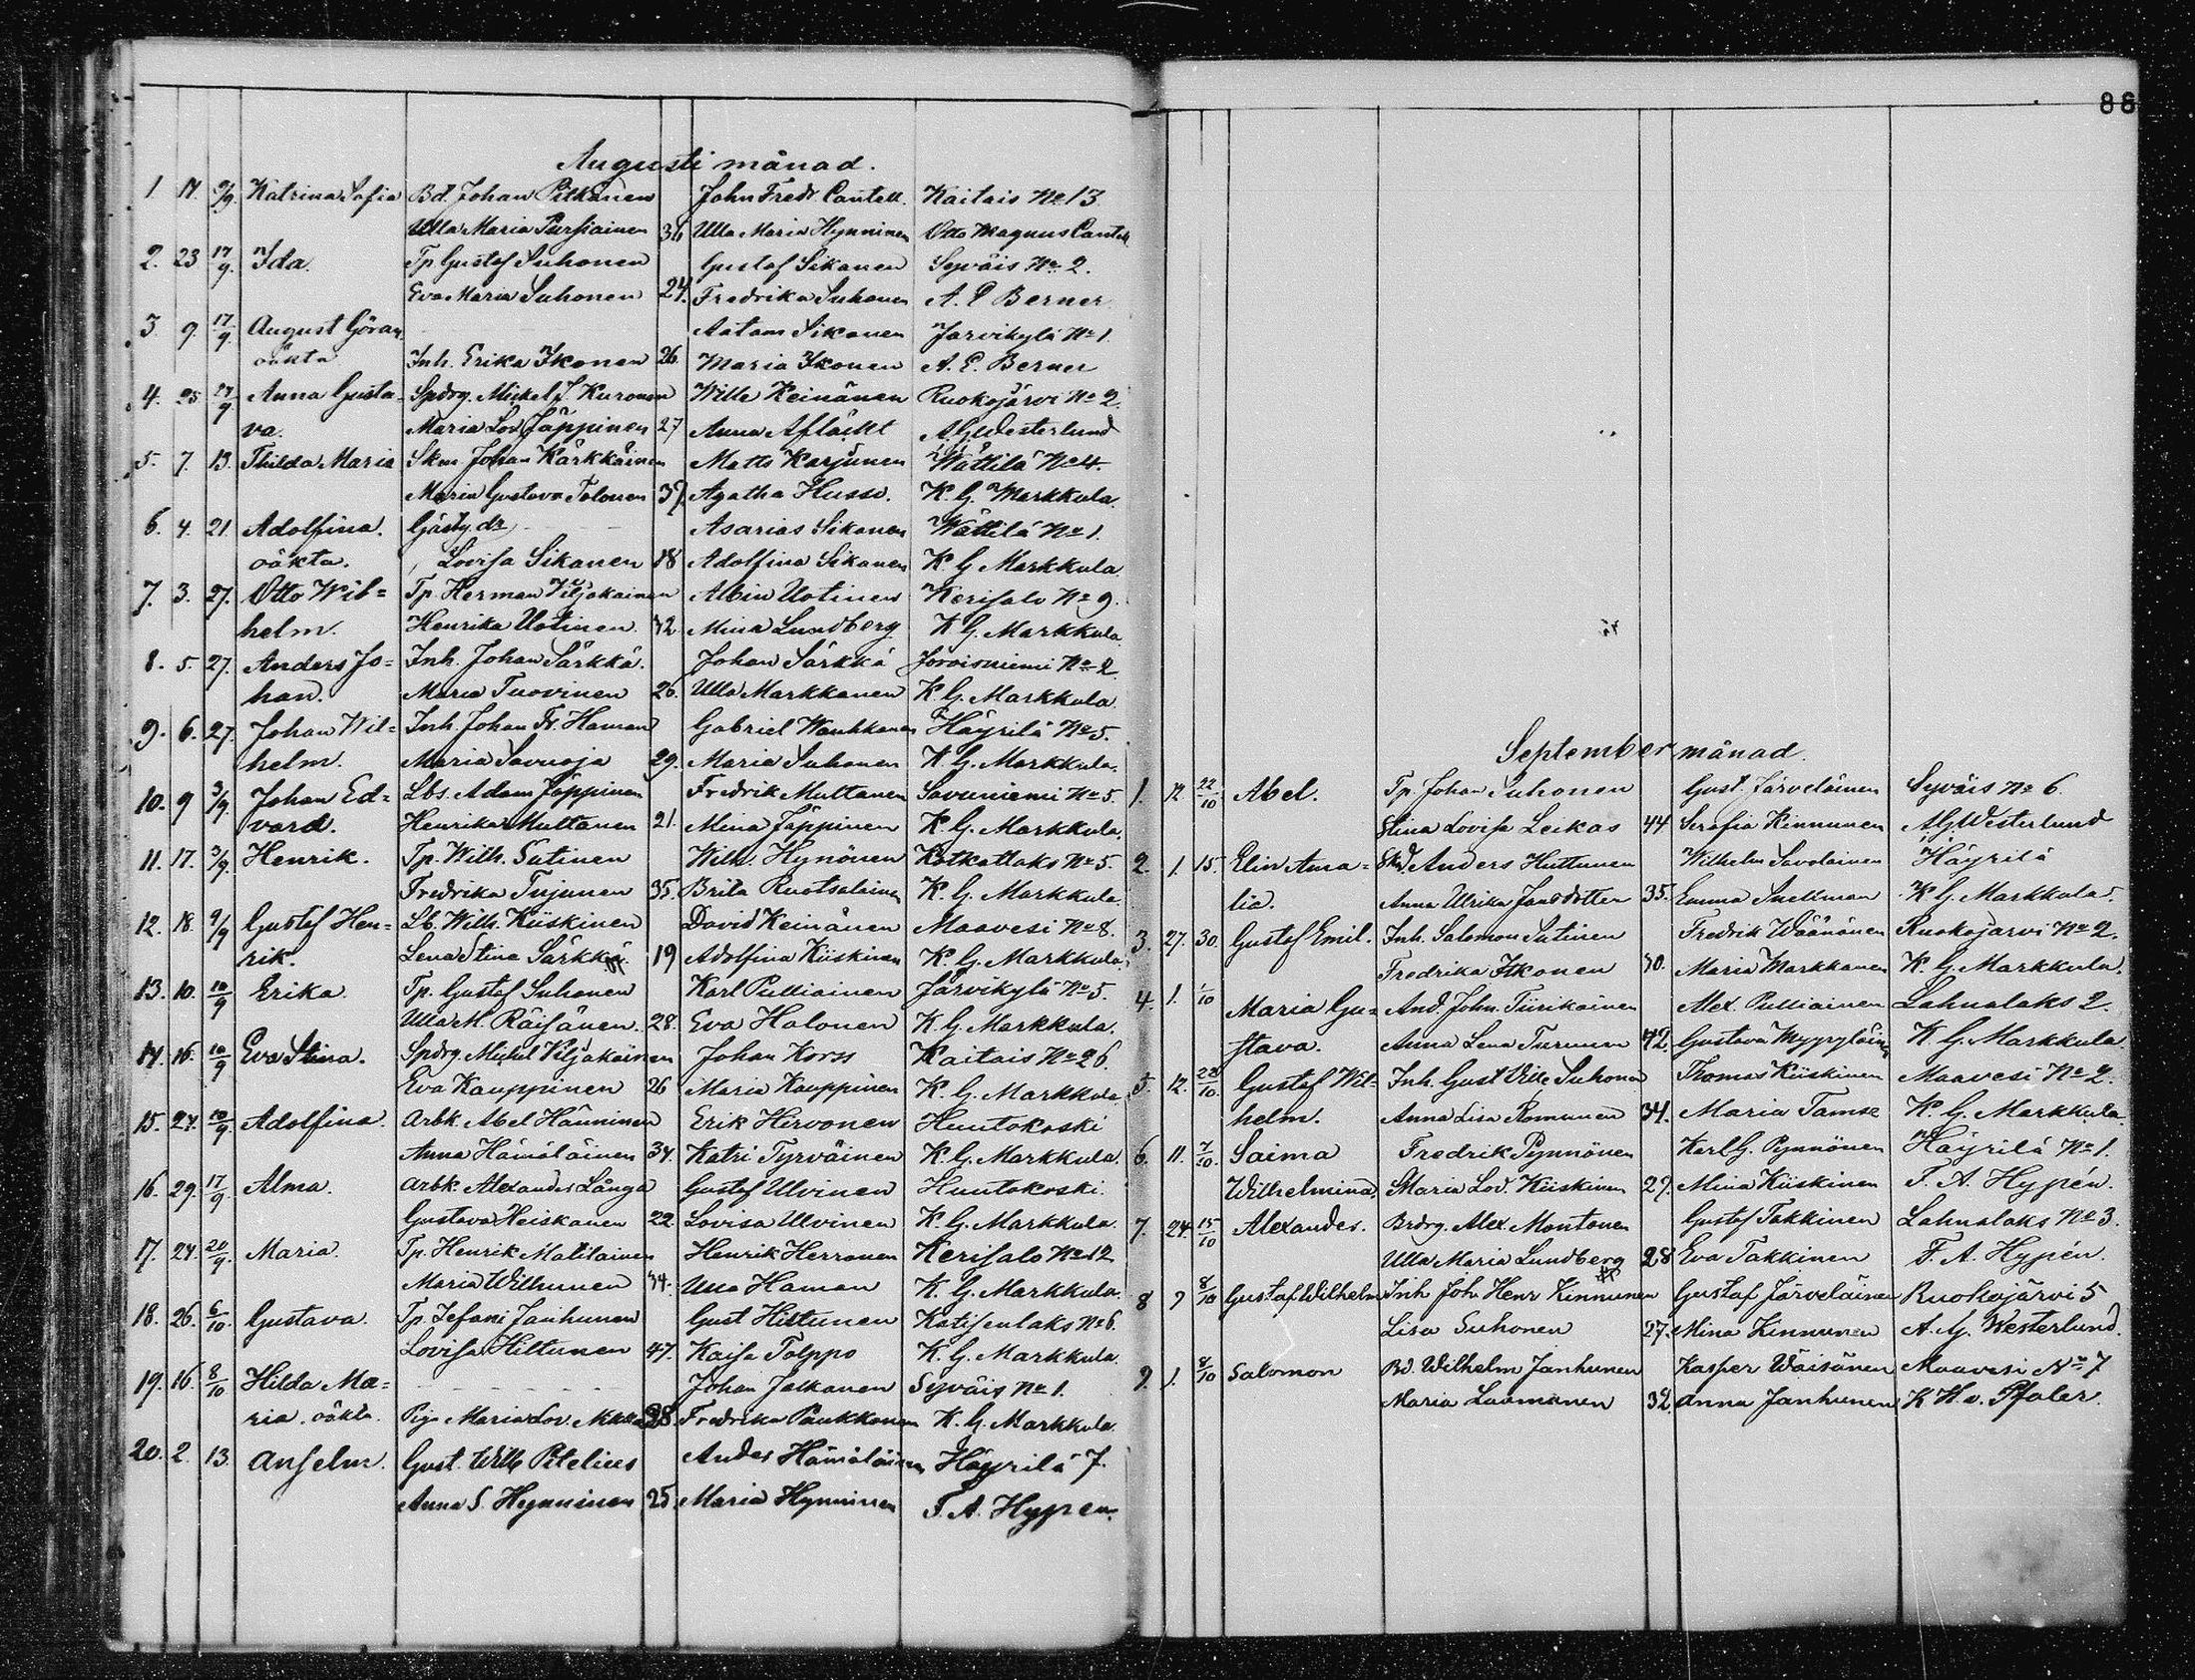 88
Augusti månad.
1. 17. 9/9. Katrina Sofia Bd. Johan Pitkänen John Fredr Cantell. Kaitais No 13.
Ulla Maria Pursiainen 36 Ulla Maria Hynninen Otto Magnus Cantell
2. 23 17/9. Ida. Tp Gustaf Suhonen Gustaf Sikanen Syväis No 2.
Eva Maria Suhonen 24. Fredrika Suhonen A. E Berner
3 9. 17/9. August Göran Aatam Sikanen Jarvikylä No 1.
oäkta Inh. Erika Ikonen 26. Maria Ikonen A. E. Berner
4. 25 17/9 Anna Gusta- Spdrg. Mickel J. Kuronen Wille Keinänen Ruokojärvi No 2.
va. Maria Lov Jäppinen 27 Anna Afläckt A G Westerlund
5. 7. 13. Thilda Maria Skm Johan Kärkkäinen Matts Karjunen Wättilä No 4.
Maria Gustava Tolonen 37. Agatha Husso. K. G. Markkula.
6. 4. 21. Adolfina. Gästg.dr Asarias Sikanen Wättilä No 1.
oäkta. Lovisa Sikanen 18 Adolfina Sikanen K G Markkula
7. 3. 27. Otto Wil= Tp. Herman Viljakainen Albin Uotinen Kerisalo No 9.
helm. Henrika Uotinen. 32 Mina Lundberg K G. Markkula
8. 5. 27. Anders Jo= Inh. Johan Särkkä. Johan Särkkä Joroisniemi No 2
han. Maria Tuovinen 26. Ulla Markkanen K. G. Markkula
9. 6. 27. Johan Wil= Inh. Johan Fr. Haman Gabriel Wauhkonen Häyrilä No 5.
helm. Maria Savuoja 29. Maria Suhonen K. G. Markkula.
10. 9 3/9. Johan Ed= Lbs. Adam Jäppinen Fredrik Multanen Savuniemi No 5.
vard. Henrika Multanen 21. Mina Jäppinen K. G. Markkula.
11. 17. 3/9. Henrik. Tp. Wilh. Sutinen Wilh. Hynönen Kotkatlaks No 5.
Fredrika Tujunen 35. Brita Ruotsalainen K. G. Markkula.
12. 18. 9/9 Gustaf Hen= Lb. Wilh. Kiiskinen David Keinänen Maavesi No 8.
rik. Lena Stina Särkkä 19 Adolfina Kiiskinen K. G. Markkula
13. 10. 10/9 Erika. Tp. Gustaf Suhonen Karl Pulliainen Järvikylä No 5.
Ulla M. Räisänen. 28. Eva Halonen K. G. Markkula.
14. 16. 10/9 Eva Stina. Spdrg. Mickel Viljakainen Johan Korss Kaitais No 26.
Eva Kauppinen 26 Maria Kauppinen K. G. Markkula
15. 24. 10/9. Adolfina. Arbk. Abel Hänninen Erik Hirvonen Huutokoski
Anna Hämäläinen 34. Katri Tyrväinen K. G. Markkula.
16. 29. 17/9. Alma. Arbk. Alexander Långa Gustaf Ulvinen Huutokoski.
Gustava Heiskanen 22. Lovisa Ulvinen K. G. Markkula.
17. 24. 20/9. Maria. Tp. Henrik Matilainen Henrik Herranen Kerisalo No 12
Maria Wilhunen 34. Ulla Haman K. G. Markkula.
18. 26. 6/10. Gustava. Tp. Tefani Janhunen Gust Hiltunen Katisenlaks No 6.
Lovisa Hiltunen 47. Kaisa Tolppo K. G. Markkula
19. 16. 8/10 Hilda Ma= Johan Jalkanen Syväis No 1.
ria. oäkta. Pig. Maria Lov. 28. Fredrika Paukkonen K. G. Markkula.
20. 2. 13. Anselm. Gust. Wilh Petelius Ander Hämäläinen Häyrilä 7.
Anna S. Hynninen 25. Maria Hynninen F. A. Hypen.
September månad.
1. 12. 22/10 Abel. Tp. Johan Suhonen Gust. Järveläinen Syväis No 6.
Stina Lovisa Leikas 44 Serafia Kinnunen A G Westerlund
2. 1. 15. Elin Ama= Skd. Anders Huttunen Wilhelm Savolainen Häyrilä
lia. Anna Ulrika Jansdotter 35. Emma Snellman K. G. Markkula.
3. 27. 30. Gustaf Emil. Inh. Salomon Sutinen Fredrik Wäänänen Ruokojarvi No 2.
Fredrika Itkonen 30. Maria Markkanen K. G. Markkula.
4. 1. 1/10 Maria Gu= And. John. Tiirikainen Alex. Pulliainen Lahnalaks 2.
stava. Anna Lena Turunen 42. Gustava Myyryläinen K. G. Markkula.
5. 12. 22/10. Gustaf Wil- Inh. Gust Ville Suhonen Thomas Kiiskinen Maavesi No 2.
helm. Anna Lisa Romunen 34. Maria Tamse K. G. Markkula.
6. 11. 7/10. Saima Fredrik Pynnönen Karl G. Pynnönen Häyrilä No 1.
Wilhelmina. Maria Lov. Kiiskinen 29. Mina Kiiskinen F. A. Hypén.
7. 24. 15/10 Alexander. Brdrg. Alex. Montonen Gustaf Takkinen Lahnalaks No 3.
Ulla Maria Lundberg 28 Eva Takkinen F. A. Hypén.
8 9 8/10 Gustaf Wilhelm Inh Joh Henr Kinnunen Gustaf Järveläinen Ruokojärvi 5
Lisa Suhonen 27. Mina Kinnunen A. G. Westerlund.
9. 1. 8/10 Salomon Bd. Wilhelm Janhunen Kasper Wäisänen Maavesi No 7
Maria Laamanen 32. Anna Janhunen K H v. Pfaler.